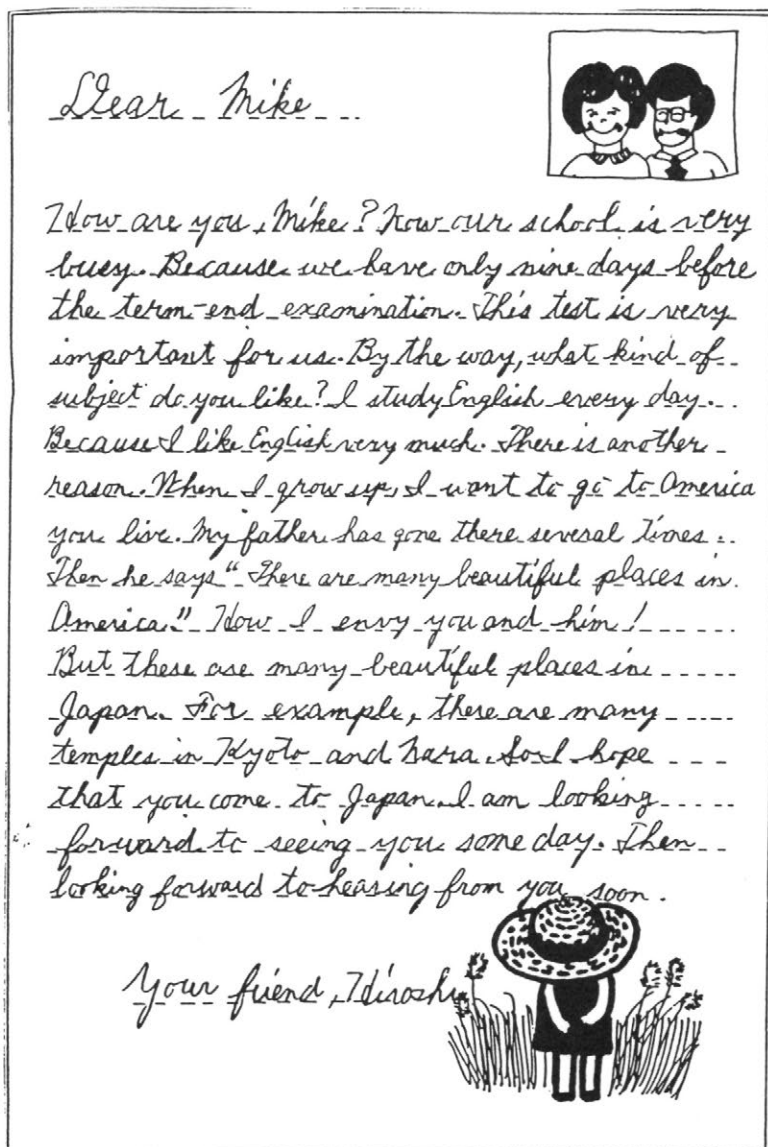 Dear Mike
How are you, Mike? Now our school is very
busy. Because we have only nine days before
the term-end examination. This test is very
important for us. By the way, what kind of
subject do you like? I study English every day.
Because I like English very much. There is another
reason. When I grow up, I want to go to America
you live. My father has gone there several times.
Then he says "There are many beautiful places in
America." How I envy you and him!
But these are many beautiful places in
Japan. For example, there are many
temples in Kyoto and Nara. So I hope
that you come to Japan. I am looking
forward to seeing you some day. Then
looking forward to heasing from you soon.
Your friend, Hiroshi